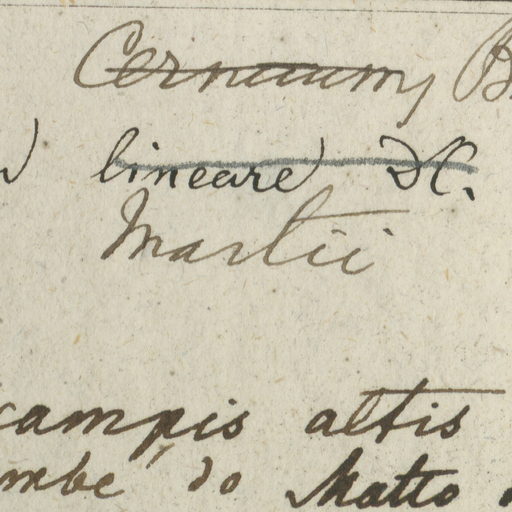 Cernuum, B
lineare DC.
Martii
campis altis
mbe do Matto